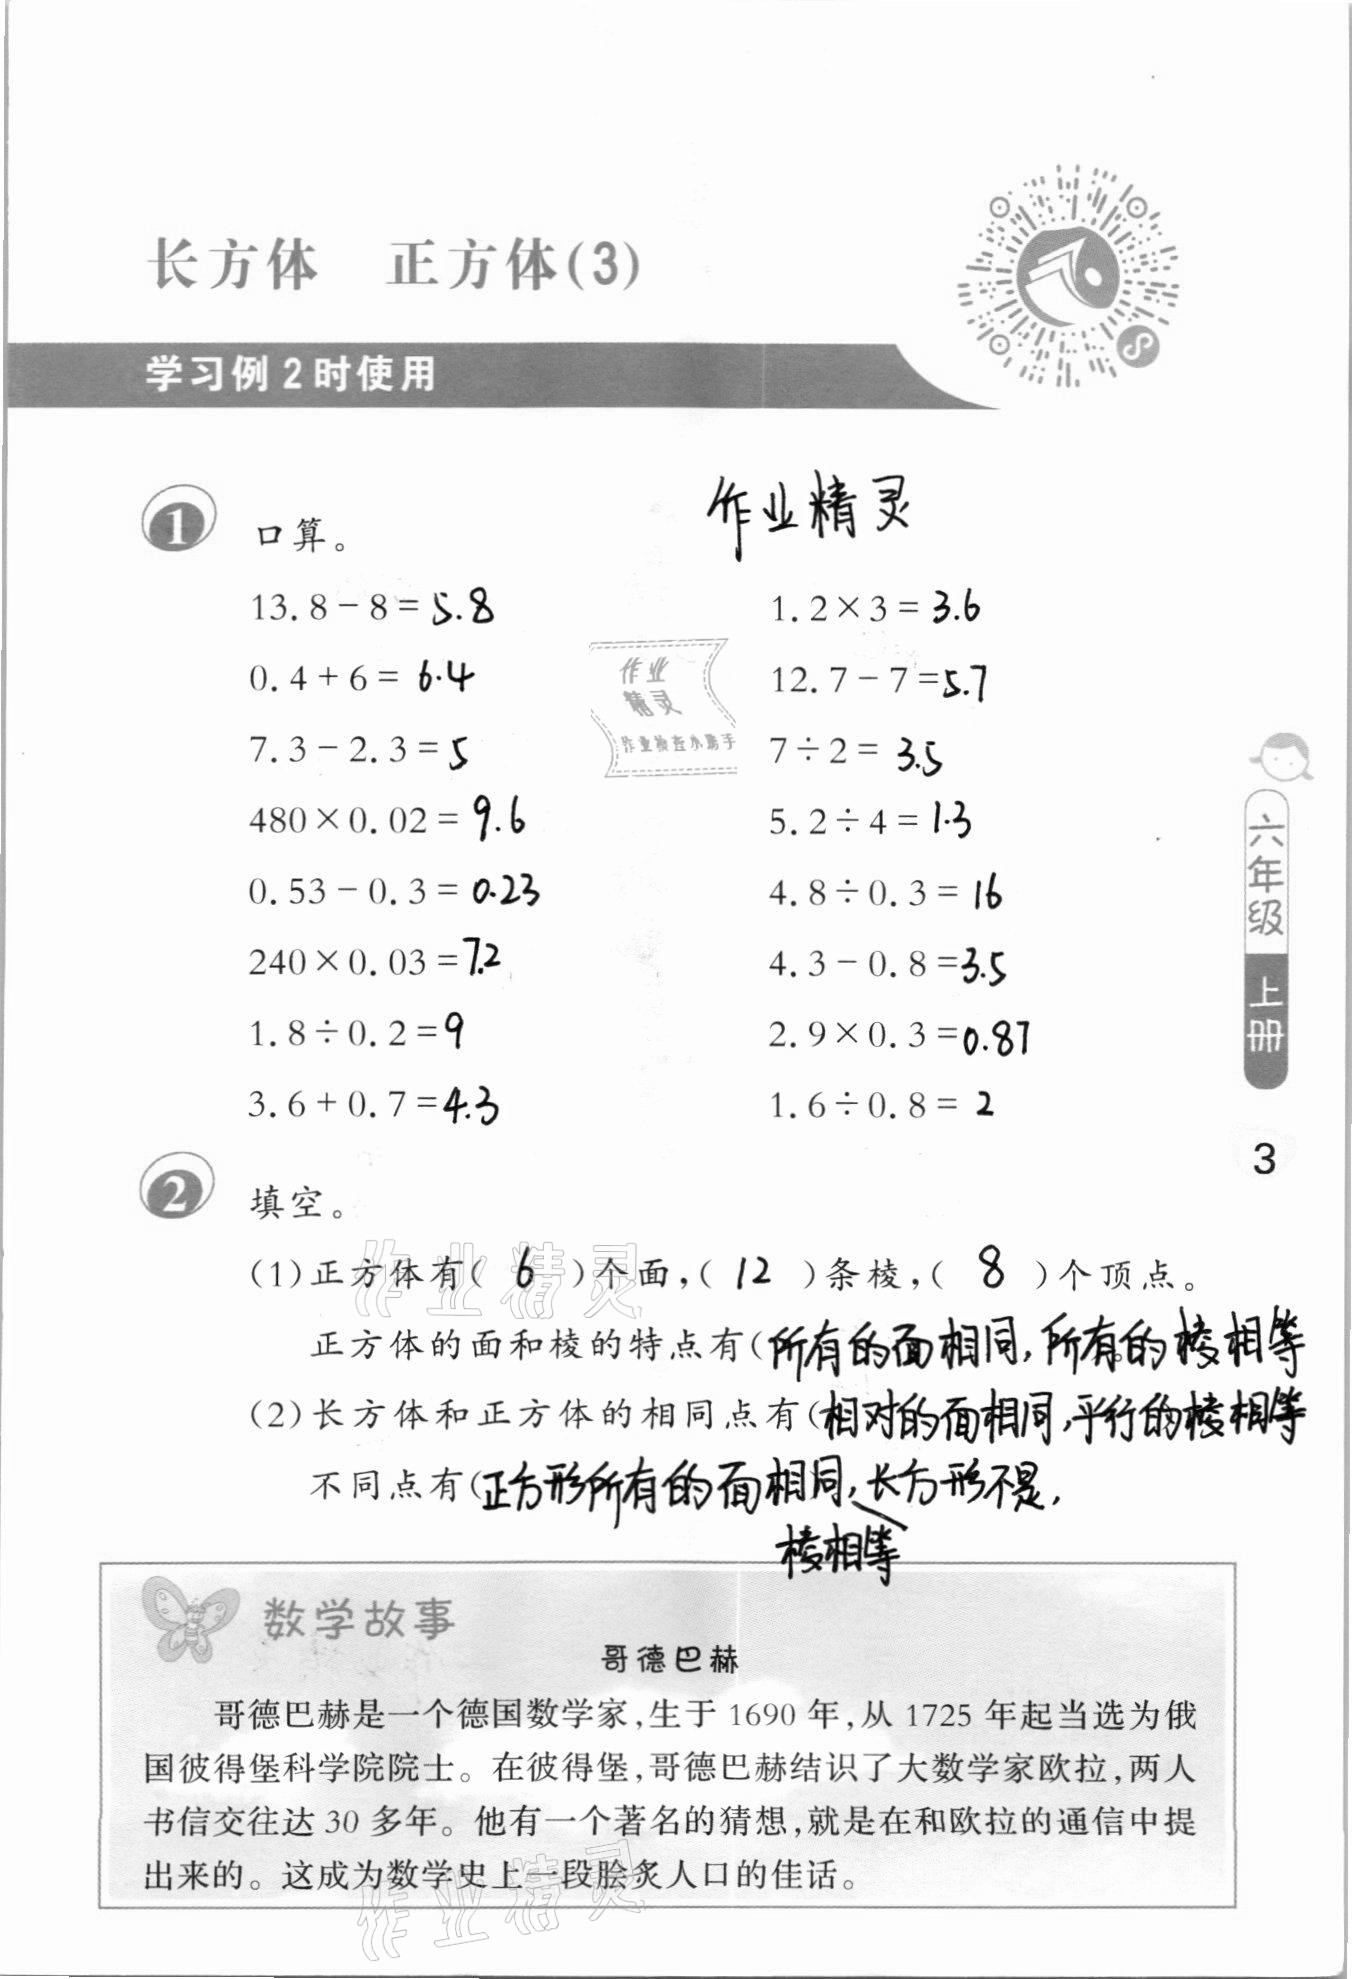 长方体 正方体(3)
学习例2时使用
1 口算。
作业精灵
13.8-8=5.8
1.2×3=3.6
0.4+6=6.4
12.7-7=5.7
7.3-2.3=5
7÷2=3.5
480×0.02=9.6
5.2÷4=1.3
0.53-0.3=0.23
4.8÷0.3=16
240×0.03=7.2
4.3-0.8=3.5
1.8÷0.2=9
2.9×0.3=0.87
3.6+0.7=4.3
1.6÷0.8=2
作业
精灵
作业检查小助手
六年级
上册
3
2 填空。
(1)正方体有( 6 )个面,( 12 )条棱,( 8 )个顶点。
正方体的面和棱的特点有(所有的面相同,所有的棱相等
(2)长方体和正方体的相同点有(相对的面相同,平行的棱相等
不同点有(正方形所有的面相同,长方形不是,
棱相等
数学故事
哥德巴赫
哥德巴赫是一个德国数学家,生于1690年,从1725年起当选为俄
国彼得堡科学院院士。在彼得堡,哥德巴赫结识了大数学家欧拉,两人
书信交往达30多年。他有一个著名的猜想,就是在和欧拉的通信中提
出来的。这成为数学史上一段脍炙人口的佳话。
作业精灵
作业精灵